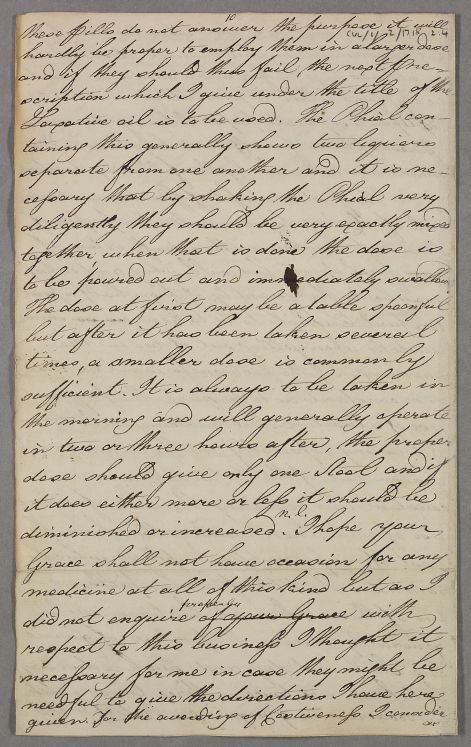 10
these Pills do not answer the purpose it will
hardly be proper to employ them in a larger dose
and if they should thus fail, the next Pre-
scription which I give under the title of the
Laxative oil is to be used. The Phial con-
taining this generally shows two liquors
separate from one another and it is ne-
cessary that by shaking the Phial very
diligently they should be very exactly mixed
together when that is done the dose is
to be poured out and immediately swallow
The dose at first may be a table spoonful
but after it has been taken several
times, a smaller dose is commonly
sufficient. It is always to be taken in
the morning and will generally operate
in two or three hours after, the proper
dose should give only one Stool and if
it does either more or less it should be
diminished or increased. n.l. I hope your
Grace shall not have occasion for any
medicine at all of this kind but as I
did not enquire of your Grace with
respect to this business I thought it
necessary for me in case they might be
needful to give the directions I have here
given. For the avoiding of Costiveness I consider